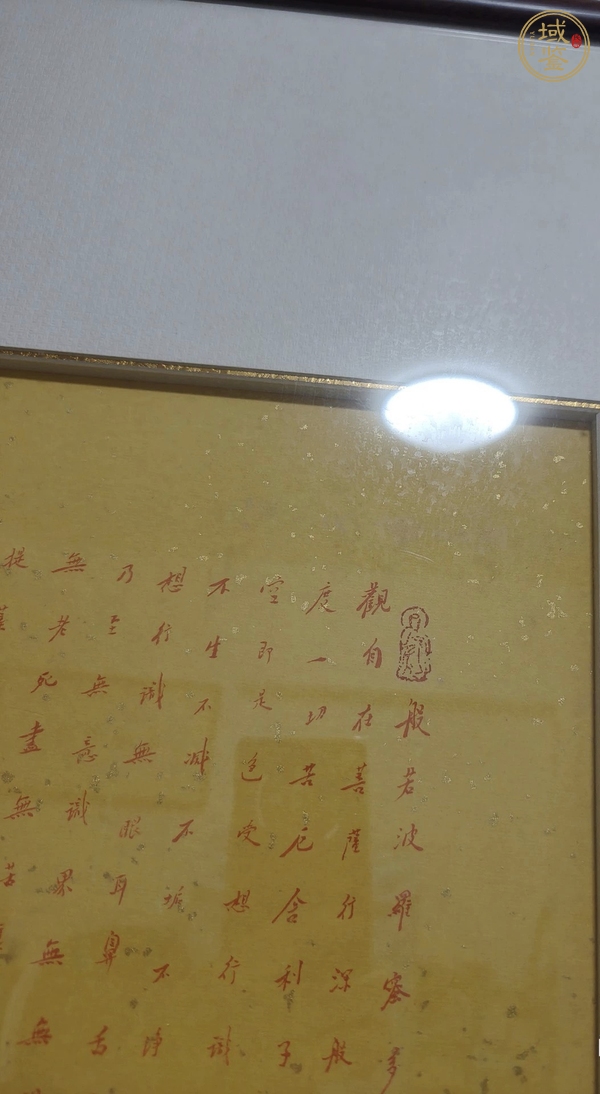 域鉴
般若波羅蜜多
觀自在菩薩行深般
度一切苦厄舍利子
空即是色受想行識
不生不滅不垢不淨
想行識無眼耳鼻舌
乃至無意識界無無
無老死盡無苦
提